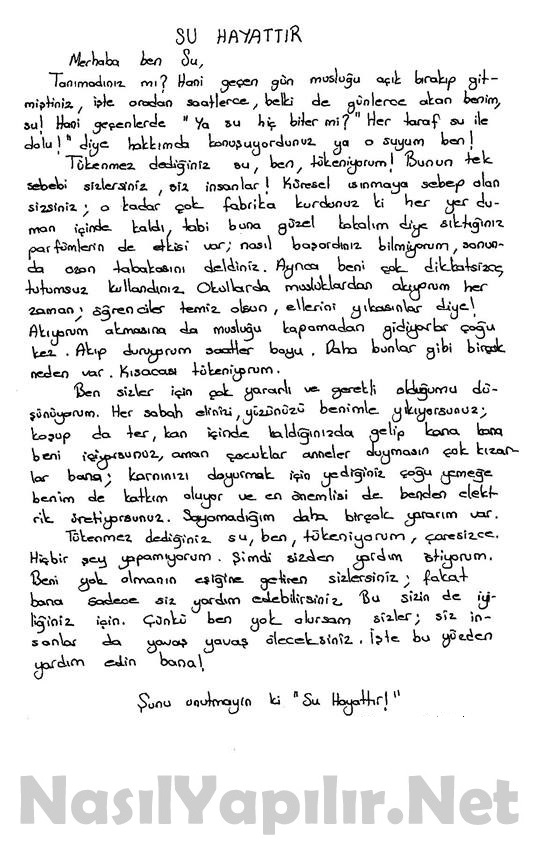 SU HAYATTIR
Merhaba ben Su,
Tanımadınız mı? Hani geçen gün musluğu açık bırakıp git-
miştiniz, işte oradan saatlerce, belki de günlerce akan benim,
su! Hani geçenlerde "Ya su hiç biter mi?" Her taraf su ile
dolu!" diye hakkımda konuşuyordunuz ya o suyum ben!
Tükenmez dediğiniz su, ben, tükeniyorum! Bunun tek
sebebi sizlersiniz, siz insanlar! Küresel ısınmaya sebep olan
sizsiniz; o kadar çok fabrika kurdunuz ki her yer du-
man içinde kaldı, tabi buna güzel kokalım diye sıktığınız
parfümlerin de etkisi var; nasıl başardınız bilmiyorum, sonun-
da ozon tabakasını deldiniz. Ayrıca beni çok dikkatsizce,
tutumsuz kullandınız. Okullarda musluklardan akıyorum her
zaman; öğrenciler temiz olsun, ellerini yıkasınlar diye!
Akıyorum akmasına da musluğu kapamadan gidiyorlar çoğu
kez. Akıp duruyorum saatler boyu. Daha bunlar gibi birçok
neden var. Kısacası tükeniyorum.
Ben sizler için çok yararlı ve gerekli olduğumu dü-
şünüyorum. Her sabah elinizi, yüzünüzü benimle yıkıyorsunuz;
koşup da ter, kan içinde kaldığınızda gelip kana kana
beni içiyorsunuz, aman çocuklar anneler duymasın çok kızar-
lar bana; karnınızı doyurmak için yediğiniz çoğu yemeğe
benim de katkım oluyor ve en önemlisi de benden elekt-
rik üretiyorsunuz. Sayamadığım daha birçok yararım var.
Tükenmez dediğiniz su, ben, tükeniyorum, çaresizce.
Hiçbir şey yapamıyorum. Şimdi sizden yardım istiyorum.
Beni yok olmanın eşiğine getiren sizlersiniz; fakat
bana sadece siz yardım edebilirsiniz. Bu sizin de iyi-
liğiniz için. Çünkü ben yok olursam sizler; siz in-
sanlar da yavaş yavaş öleceksiniz. İşte bu yüzden
yardım edin bana!
Şunu unutmayın ki "Su Hayattır!"
NasılYapılır.Net